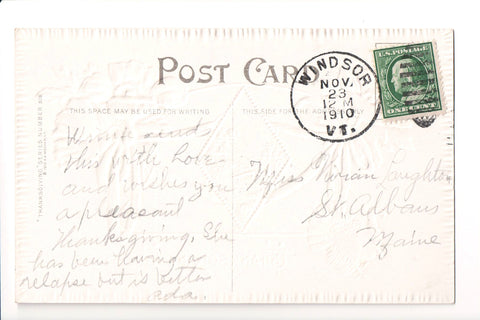 POST CARD
THIS SPACE MAY BE USED FOR WRITING
THIS SIDE FOR THE ADDRESS
WINDSOR
NOV.
23
12 M
1910
VT.
U.S. POSTAGE
ONE CENT
send
this with love
and wishes you
a pleasant
Thanksgiving. She
has been having a
relapse but is better
Ada.
Miss Vivian Laughton
St. Albans
Maine
THANKSGIVING SERIES NUMBER